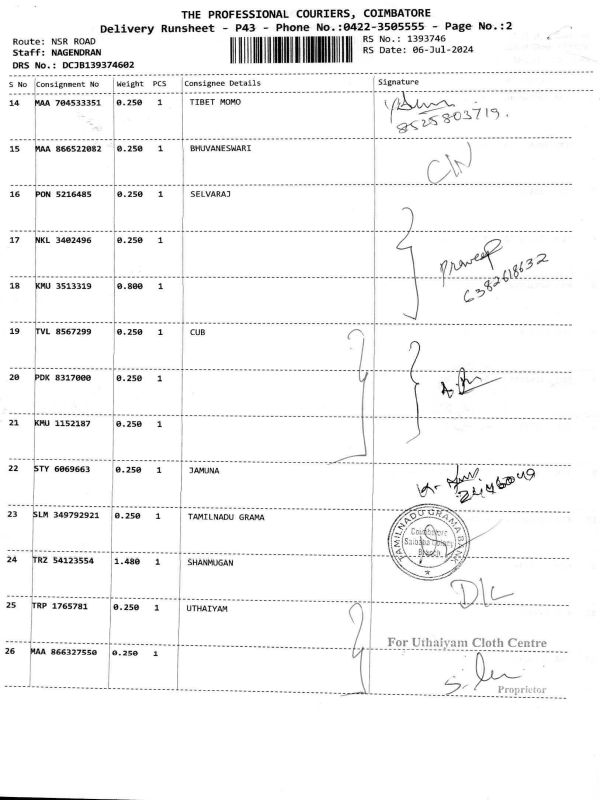 THE PROFESSIONAL COURIERS, COIMBATORE
Delivery Runsheet - P43 - Phone No.:0422-3505555 - Page No.:2
Route: NSR ROAD
RS No.: 1393746
Staff: NAGENDRAN
RS Date: 06-Jul-2024
DRS No.: DCJB139374602
S No Consignment No Weight PCS Consignee Details Signature
14 MAA 704533351 0.250 1 TIBET MOMO
8525803719.
15 MAA 866522082 0.250 1 BHUVANESWARI
C/N
16 PON 5216485 0.250 1 SELVARAJ
17 NKL 3402496 0.250 1
Praveen
6382618632
18 KMU 3513319 0.800 1
19 TVL 8567299 0.250 1 CUB
20 PDK 8317000 0.250 1
21 KMU 1152187 0.250 1
22 STY 6069663 0.250 1 JAMUNA
23 SLM 349792921 0.250 1 TAMILNADU GRAMA
TAMILNADU GRAMA BANK
Coimbatore
Saibaba Colony
Branch
24 TRZ 54123554 1.480 1 SHANMUGAN
D/L
25 TRP 1765781 0.250 1 UTHAIYAM
For Uthaiyam Cloth Centre
26 MAA 866327550 0.250 1
Proprietor